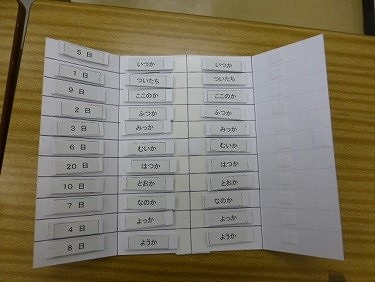 5 日 いつか いつか
1 日 ついたち ついたち
9 日 ここのか ここのか
2 日 ふつか ふつか
3 日 みっか みっか
6 日 むいか むいか
20 日 はつか はつか
10 日 とおか とおか
7 日 なのか なのか
4 日 よっか よっか
8 日 ようか ようか